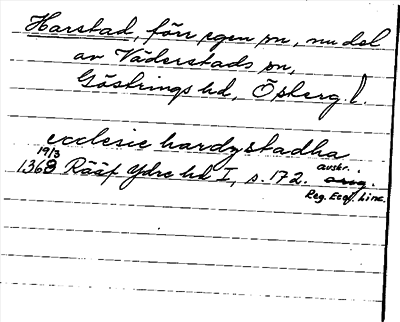 Harstad, förr egen sn, nu del
av Väderstads sn,
Göstrings hd, Österg. l.
ecclesie hardystadha
19/3
1368 Rääf Ydre hd I, s. 172. avskr.
orig.
Reg. Eccl. Linc.